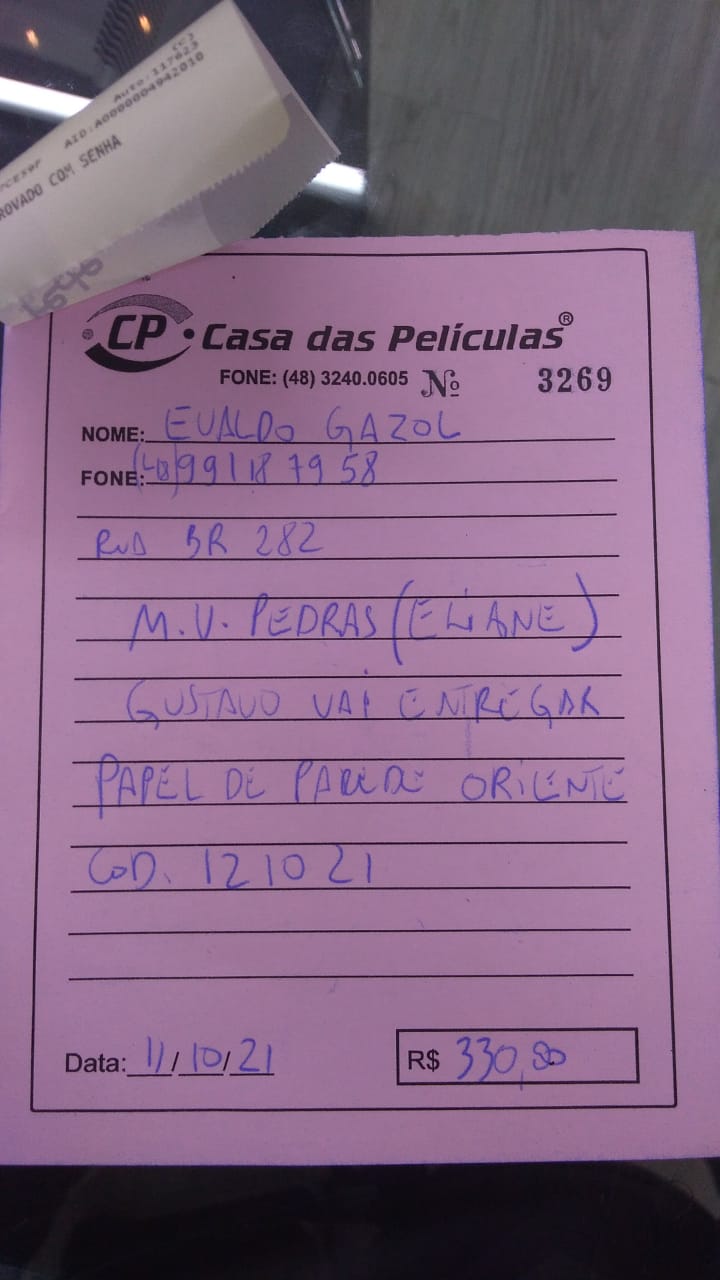 (C)
Auto:117623
AID:A0000004942010
ROVADO COM SENHA
CP Casa das Películas®
FONE: (48) 3240.0605 Nº 3269
NOME: EVALDO GAZOL
FONE: (48) 99118 7958
RUA BR 282
M.V. PEDRAS (ELIANE)
GUSTAVO VAI ENTREGAR
PAPEL DE PAREDE ORIENTE
COD. 121021
Data: 11/10/21 R$ 330,